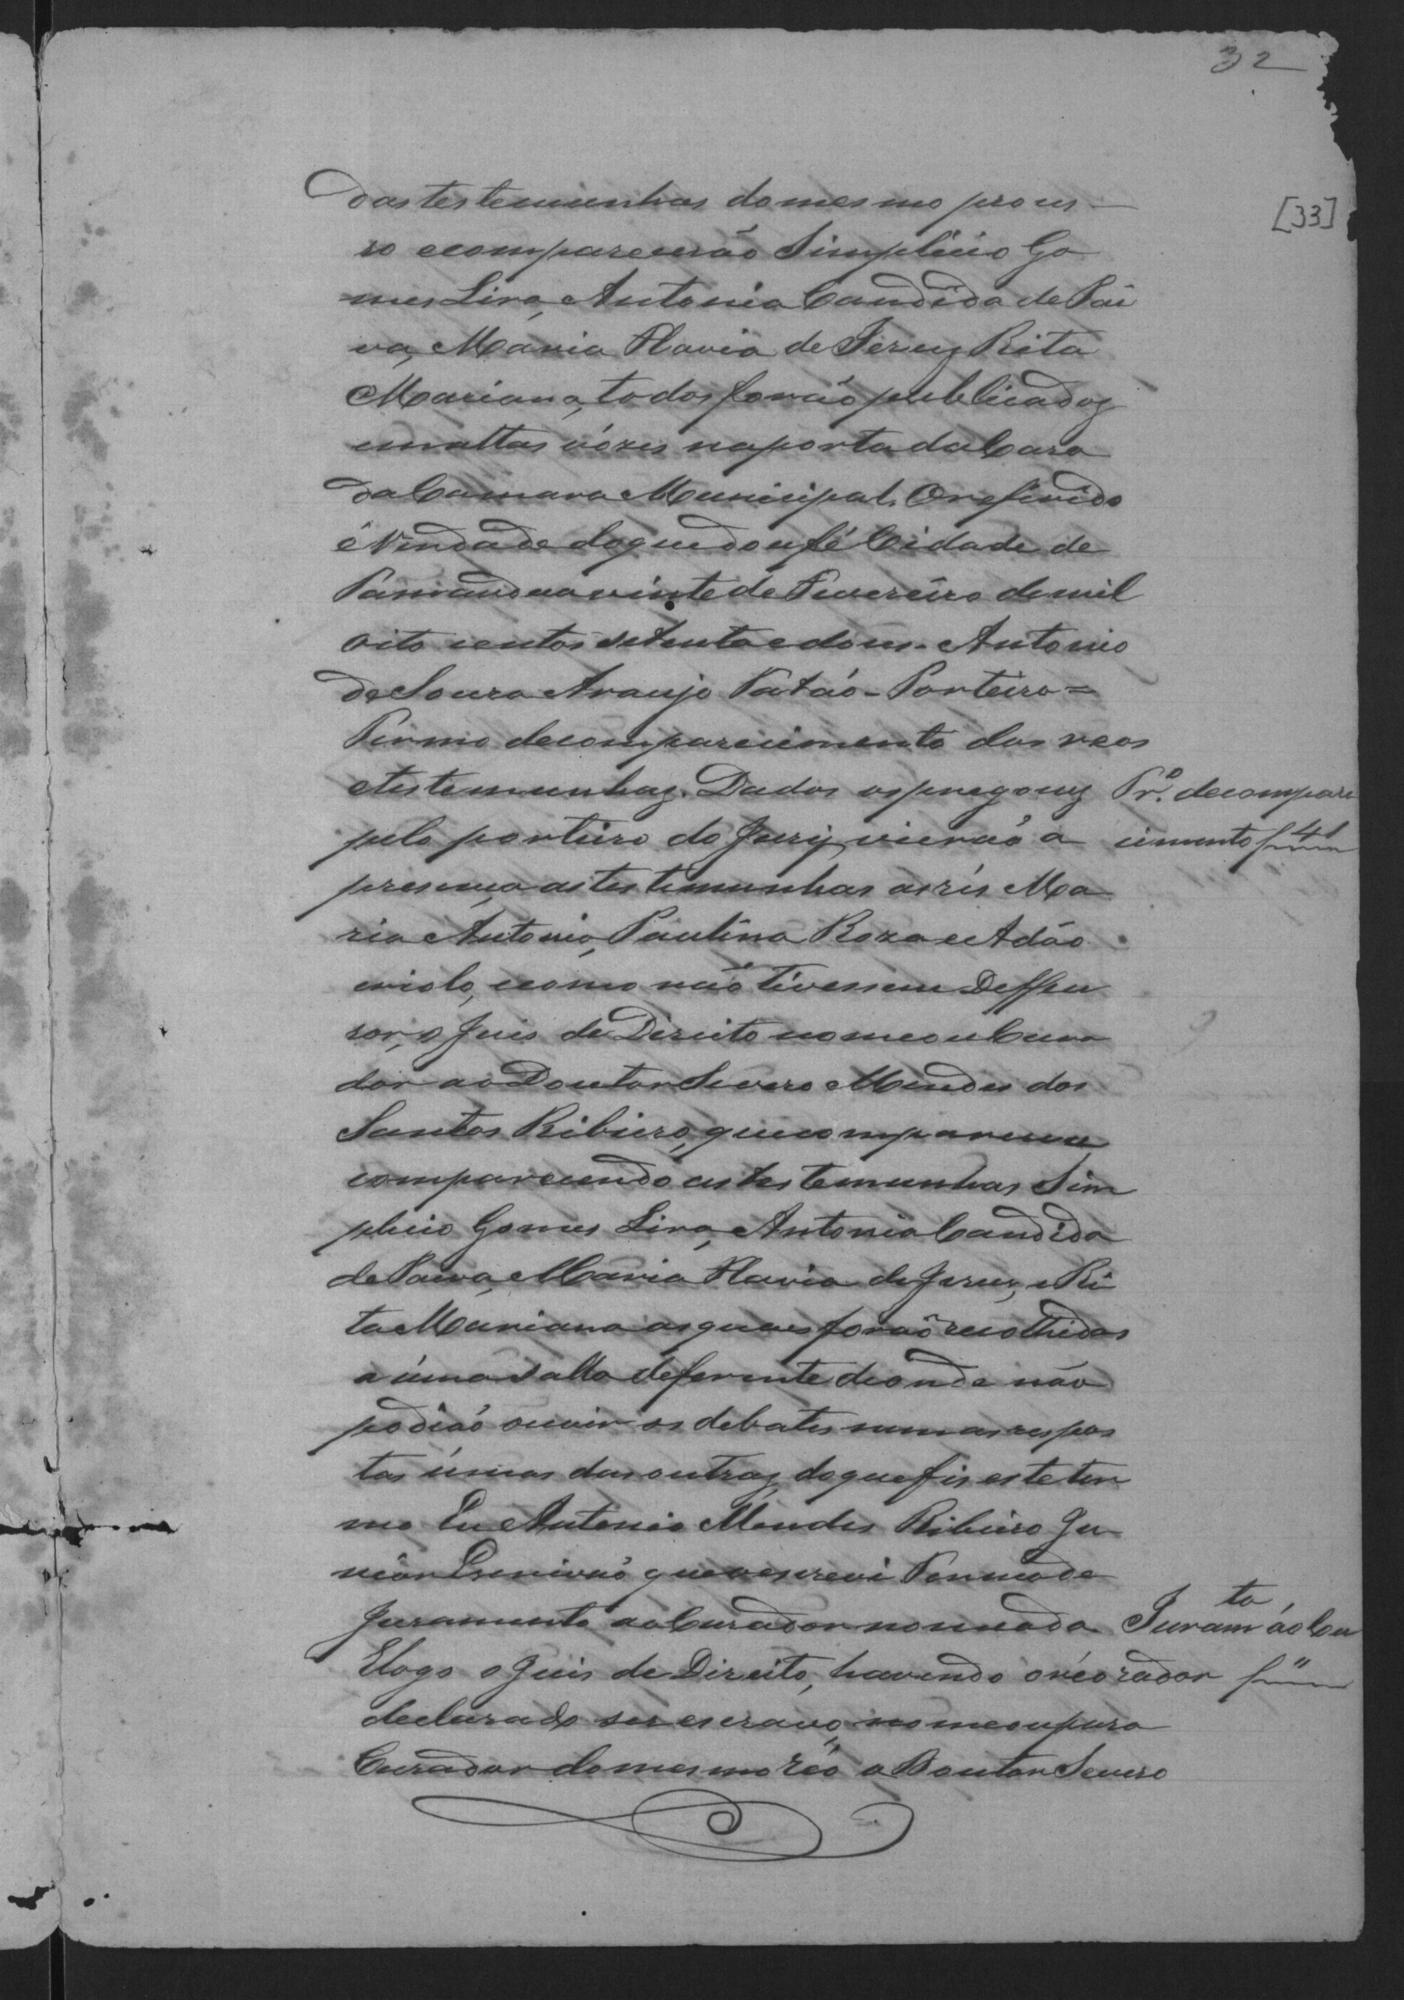 32
[33]
das testemunhas do mesmo proces-
so ecomparecerão Simplicio Go
mes Lira, Antonia Candida de Pai
va, Maria Flavia de Jesus, Rita
Mariana, todos forão publicados
em altas vózes na porta da Casa
da Camara Municipal. O referido
é Verdade do que dou fé Cidade de
vinte de Fevereiro de mil
oito centos setenta e dous. Antonio
de Souza Araujo Patáo - Porteiro =
Termo de comparecimento dos reos
etestemunhas. Dados os pregoens
Pr.º de compare
pelo porteiro do Jury, vierão a
cimento f 41
presença as testemunhas as rés Ma
ria Antonia, Paulina Roza e Adão
criolo, ecomo não tivessem Deffen
sor, o Juis de Direito nomeou Cura
dor ao Doutor Severo Mendes dos
Santos Ribiero, que compareceu
comparecendo as testemunhas Sim
plicio Gomes Lira, Antonia Candida
de Paiva, Maria Flavia de Jesus, e Ri
ta Mariana as quaes forão recolhidas
a úma salla deferente de onde não
podião ouvir os debates nem as respos
tas úmas das outras, do que fis este ter
mo Eu Antonio Mendes Ribiero Ju-
niór Escrivão que o escrevi Termo de
Juramento ao Curador nomeado
Juram.to áo Cu
E logo o Juis de Direito, havendo o réo
rador f "
declarado ser escravo, nomeou para
Curador do mesmo réo o Doutor Severo